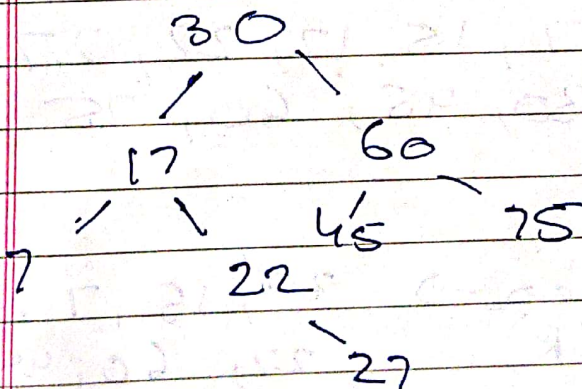 30
17 60
7 22 45 75
27